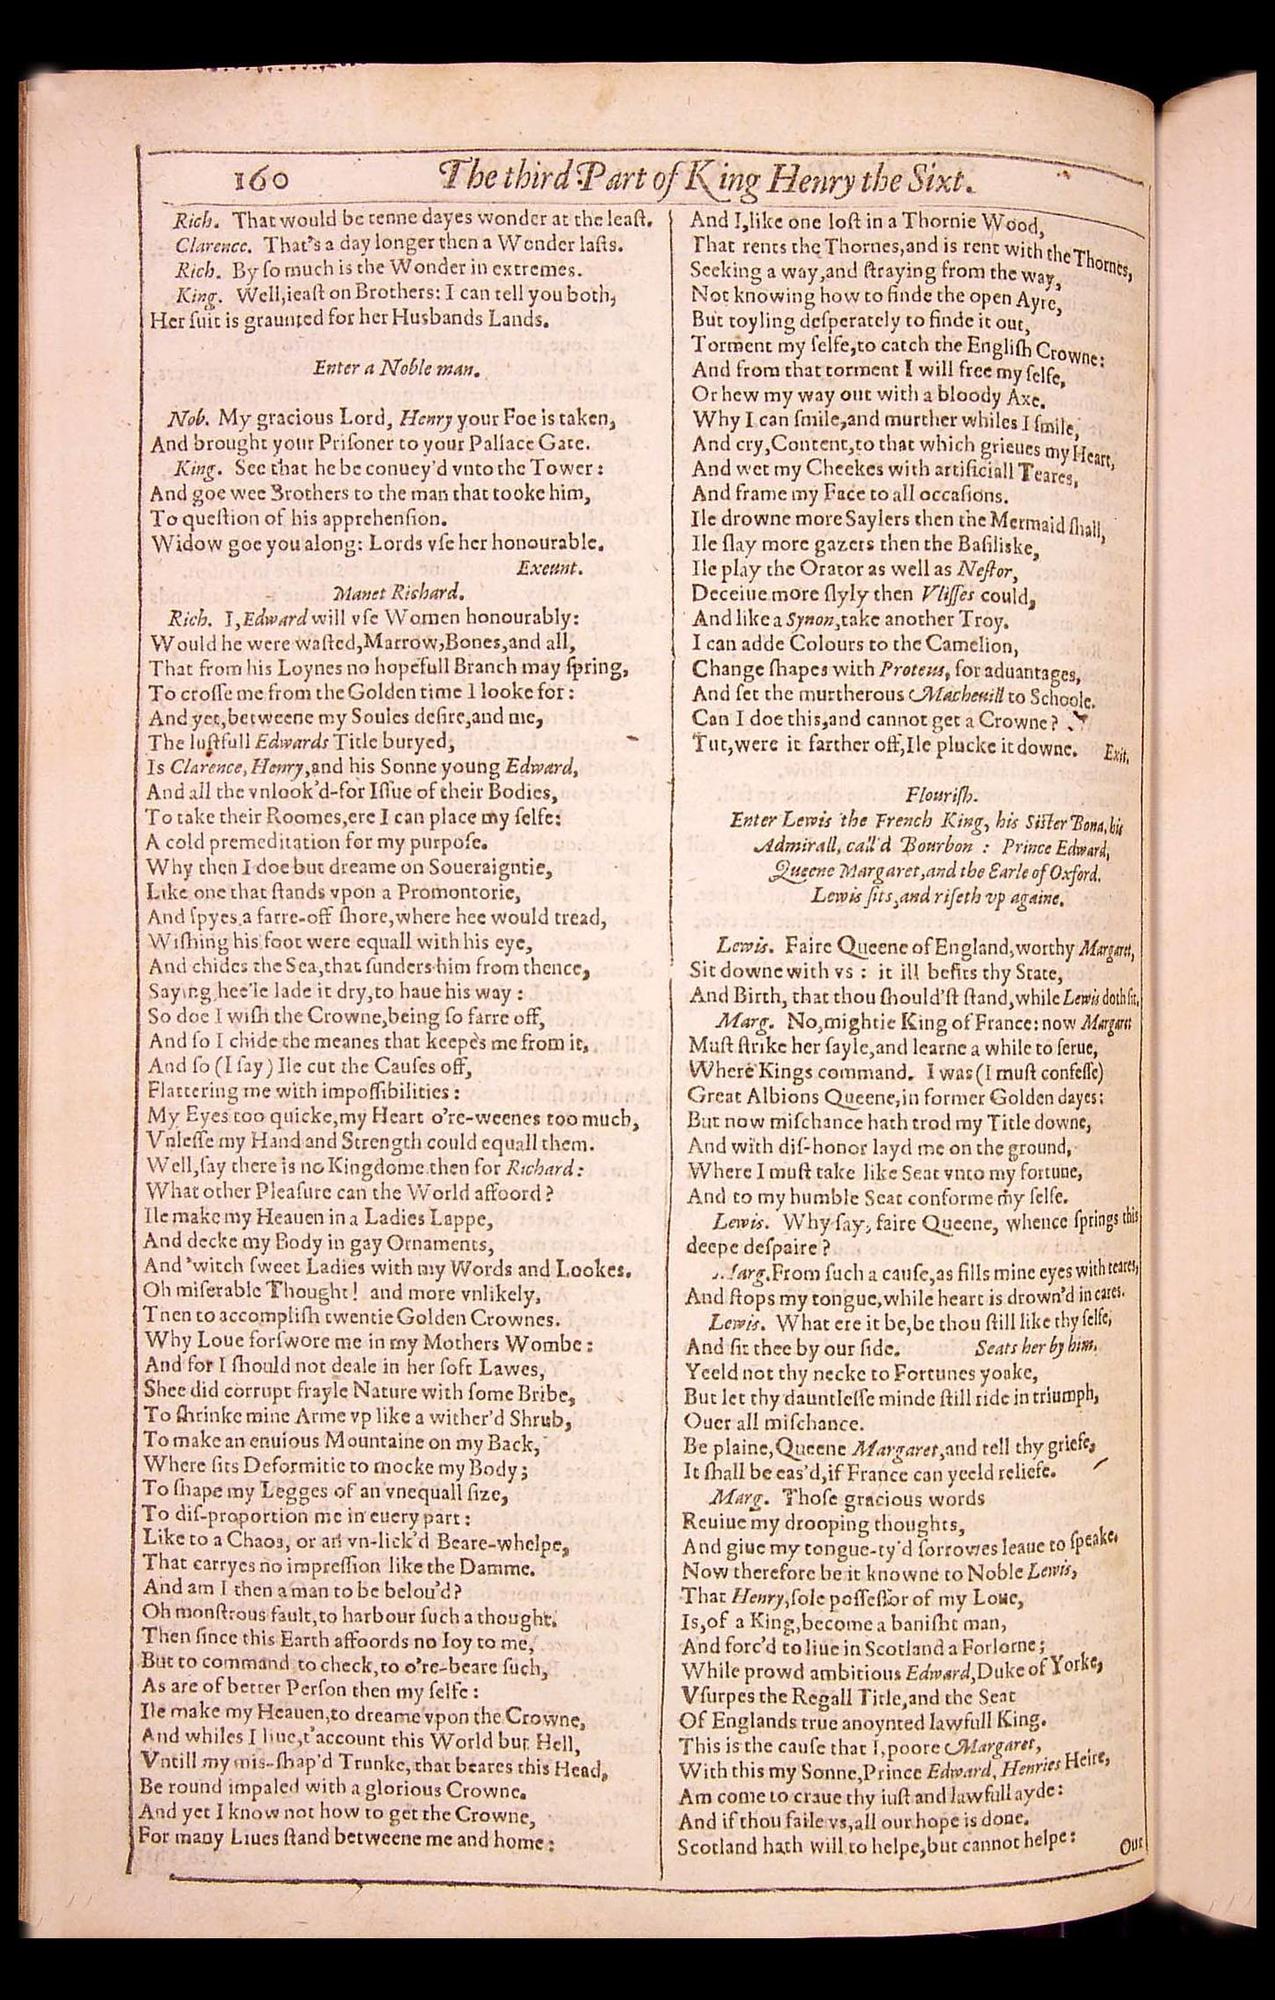 160
The third Part of King Henry the Sixt.
Rich. That would be tenne dayes wonder at the leaſt.
Clarence. That's a day longer then a Wonder laſts.
Rich. By ſo much is the Wonder in extremes.
King. Well,ieaſt on Brothers: I can tell you both,
Her ſuit is graunted for her Husbands Lands.
Enter a Noble man.
Nob. My gracious Lord, Henry your Foe is taken,
And brought your Priſoner to your Pallace Gate.
King. See that he be conuey'd vnto the Tower:
And goe wee Brothers to the man that tooke him,
To queſtion of his apprehenſion.
Widow goe you along: Lords vſe her honourable.
Exeunt.
Manet Richard.
Rich. I, Edward will vſe Women honourably:
Would he were waſted,Marrow,Bones,and all,
That from his Loynes no hopefull Branch may ſpring,
To croſſe me from the Golden time I looke for:
And yet,betweene my Soules deſire,and me,
The luſtfull Edwards Title buryed,
Is Clarence, Henry,and his Sonne young Edward,
And all the vnlook'd-for Iſſue of their Bodies,
To take their Roomes,ere I can place my ſelfe:
A cold premeditation for my purpoſe.
Why then I doe but dreame on Soueraigntie,
Like one that ſtands vpon a Promontorie,
And ſpyes a farre-off ſhore,where hee would tread,
Wiſhing his foot were equall with his eye,
And chides the Sea,that ſunders him from thence,
Saying hee'le lade it dry,to haue his way:
So doe I wiſh the Crowne,being ſo farre off,
And ſo I chide the meanes that keepes me from it,
And ſo (I ſay) Ile cut the Cauſes off,
Flattering me with impoſſibilities:
My Eyes too quicke,my Heart o're-weenes too much,
Vnleſſe my Hand and Strength could equall them.
Well,ſay there is no Kingdome then for Richard:
What other Pleaſure can the World affoord?
Ile make my Heauen in a Ladies Lappe,
And decke my Body in gay Ornaments,
And 'witch ſweet Ladies with my Words and Lookes.
Oh miſerable Thought! and more vnlikely,
Then to accompliſh twentie Golden Crownes.
Why Loue forſwore me in my Mothers Wombe:
And for I ſhould not deale in her ſoft Lawes,
Shee did corrupt frayle Nature with ſome Bribe,
To ſhrinke mine Arme vp like a wither'd Shrub,
To make an enuious Mountaine on my Back,
Where ſits Deformitie to mocke my Body;
To ſhape my Legges of an vnequall ſize,
To diſ-proportion me in euery part:
Like to a Chaos, or an vn-lick'd Beare-whelpe,
That carryes no impreſſion like the Damme.
And am I then a man to be belou'd?
Oh monſtrous fault,to harbour ſuch a thought.
Then ſince this Earth affoords no Ioy to me,
But to command, to check,to o're-beare ſuch,
As are of better Perſon then my ſelfe:
Ile make my Heauen,to dreame vpon the Crowne,
And whiles I liue,t'account this World but Hell,
Vntill my mis-ſhap'd Trunke,that beares this Head,
Be round impaled with a glorious Crowne.
And yet I know not how to get the Crowne,
For many Liues ſtand betweene me and home:
And I,like one loſt in a Thornie Wood,
That rents the Thornes,and is rent with the Thornes,
Seeking a way,and ſtraying from the way,
Not knowing how to finde the open Ayre,
But toyling deſperately to finde it out,
Torment my ſelfe,to catch the Engliſh Crowne:
And from that torment I will free my ſelfe,
Or hew my way out with a bloody Axe.
Why I can ſmile,and murther whiles I ſmile,
And cry,Content,to that which grieues my Heart,
And wet my Cheekes with artificiall Teares,
And frame my Face to all occaſions.
Ile drowne more Saylers then the Mermaid ſhall,
Ile ſlay more gazers then the Baſiliske,
Ile play the Orator as well as Neſtor,
Deceiue more ſlyly then Vliſſes could,
And like a Synon,take another Troy.
I can adde Colours to the Camelion,
Change ſhapes with Proteus, for aduantages,
And ſet the murtherous Macheuill to Schoole.
Can I doe this,and cannot get a Crowne?
Tut,were it farther off,Ile plucke it downe. Exit.
Flouriſh.
Enter Lewis the French King, his Siſter Bona, his
Admirall, call'd Bourbon: Prince Edward,
Queene Margaret,and the Earle of Oxford.
Lewis ſits,and riſeth vp againe.
Lewis. Faire Queene of England,worthy Margaret,
Sit downe with vs: it ill befits thy State,
And Birth, that thou ſhould'ſt ſtand,while Lewis doth ſit.
Marg. No,mightie King of France: now Margaret
Muſt ſtrike her ſayle,and learne a while to ſerue,
Where Kings command. I was (I muſt confeſſe)
Great Albions Queene,in former Golden dayes:
But now miſchance hath trod my Title downe,
And with diſ-honor layd me on the ground,
Where I muſt take like Seat vnto my fortune,
And to my humble Seat conforme my ſelfe.
Lewis. Why ſay, faire Queene, whence ſprings this
deepe deſpaire?
Marg. From ſuch a cauſe,as fills mine eyes with teares,
And ſtops my tongue,while heart is drown'd in cares.
Lewis. What ere it be,be thou ſtill like thy ſelfe,
And ſit thee by our ſide. Seats her by him.
Yeeld not thy necke to Fortunes yoake,
But let thy dauntleſſe minde ſtill ride in triumph,
Ouer all miſchance.
Be plaine,Queene Margaret,and tell thy griefe,
It ſhall be eas'd,if France can yeeld reliefe.
Marg. Thoſe gracious words
Reuiue my drooping thoughts,
And giue my tongue-ty'd ſorrowes leaue to ſpeake.
Now therefore be it knowne to Noble Lewis,
That Henry,ſole poſſeſſor of my Loue,
Is,of a King,become a baniſht man,
And forc'd to liue in Scotland a Forlorne;
While prowd ambitious Edward,Duke of Yorke,
Vſurpes the Regall Title,and the Seat
Of Englands true anoynted lawfull King.
This is the cauſe that I,poore Margaret,
With this my Sonne,Prince Edward, Henries Heire,
Am come to craue thy iuſt and lawfull ayde:
And if thou faile vs,all our hope is done.
Scotland hath will to helpe,but cannot helpe:
Our